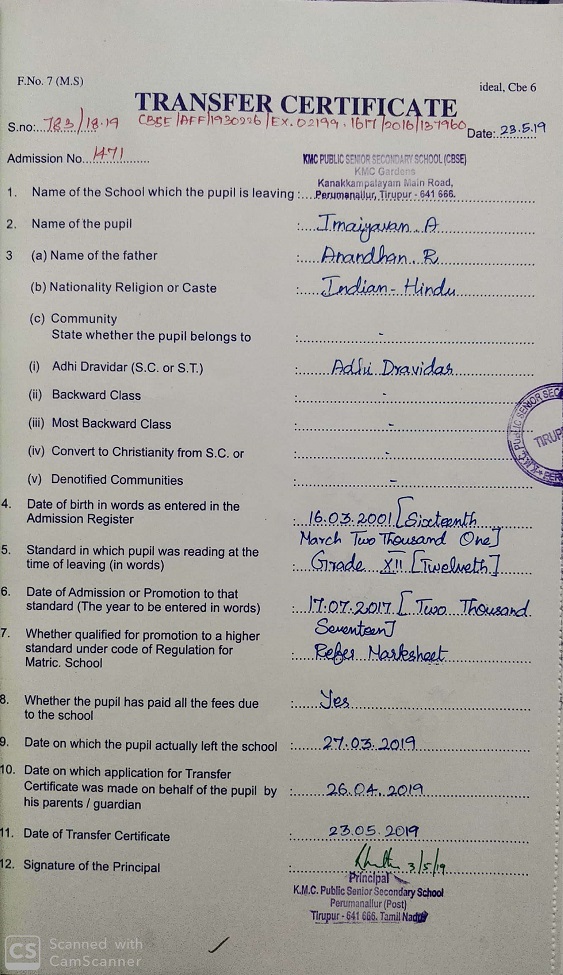 F.No. 7 (M.S)
ideal, Cbe 6
TRANSFER CERTIFICATE
S.no: 783/18-19 CBSE/AFF/1930226/EX.02199.1617/2016/137960 Date: 23.5.19
Admission No. 1471
KMC PUBLIC SENIOR SECONDARY SCHOOL (CBSE)
KMC Gardens
Kanakkampalayam Main Road,
1. Name of the School which the pupil is leaving : Perumanallur, Tirupur - 641 666.
2. Name of the pupil : Imaiyavan. A
3 (a) Name of the father : Anandhan. R
(b) Nationality Religion or Caste : Indian - Hindu
(c) Community
State whether the pupil belongs to : -
(i) Adhi Dravidar (S.C. or S.T.) : Adhi Dravidar
(ii) Backward Class : -
(iii) Most Backward Class : -
(iv) Convert to Christianity from S.C. or : -
(v) Denotified Communities : -
4. Date of birth in words as entered in the
Admission Register : 16.03.2001 [Sixteenth
March Two Thousand One]
5. Standard in which pupil was reading at the
time of leaving (in words) : Grade XII [Twelveth]
6. Date of Admission or Promotion to that
standard (The year to be entered in words) : 17.07.2017 [Two Thousand
Seventeen]
7. Whether qualified for promotion to a higher
standard under code of Regulation for
Matric. School : Refer Marksheet
8. Whether the pupil has paid all the fees due
to the school : Yes
9. Date on which the pupil actually left the school : 27.03.2019
10. Date on which application for Transfer
Certificate was made on behalf of the pupil by : 26.04.2019
his parents / guardian
11. Date of Transfer Certificate : 23.05.2019
12. Signature of the Principal : 3/5/19
Principal
K.M.C. Public Senior Secondary School
Perumanallur (Post)
Tirupur - 641 666. Tamil Nadu
CS Scanned with
CamScanner